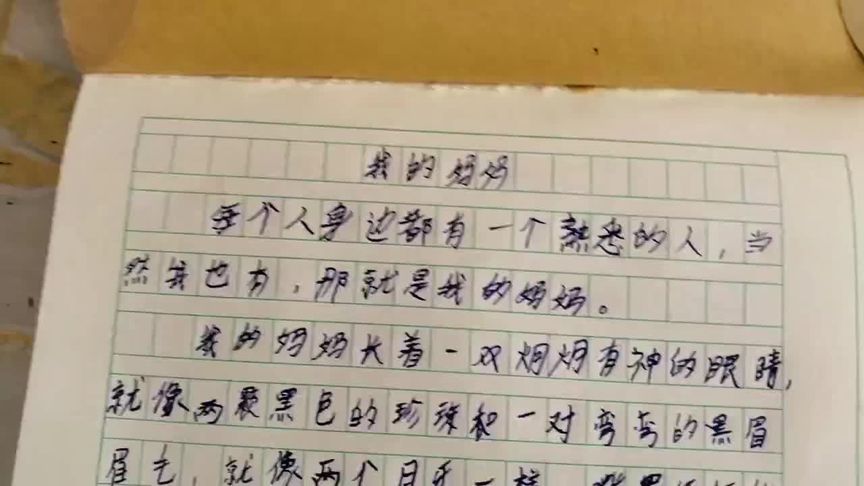 我的妈妈
每个人身边都有一个熟悉的人，当
然我也有，那就是我的妈妈。
我的妈妈长着一双炯炯有神的眼睛，
就像两颗黑色的珍珠和一对弯弯的黑眉
眉毛，就像两个月牙一样